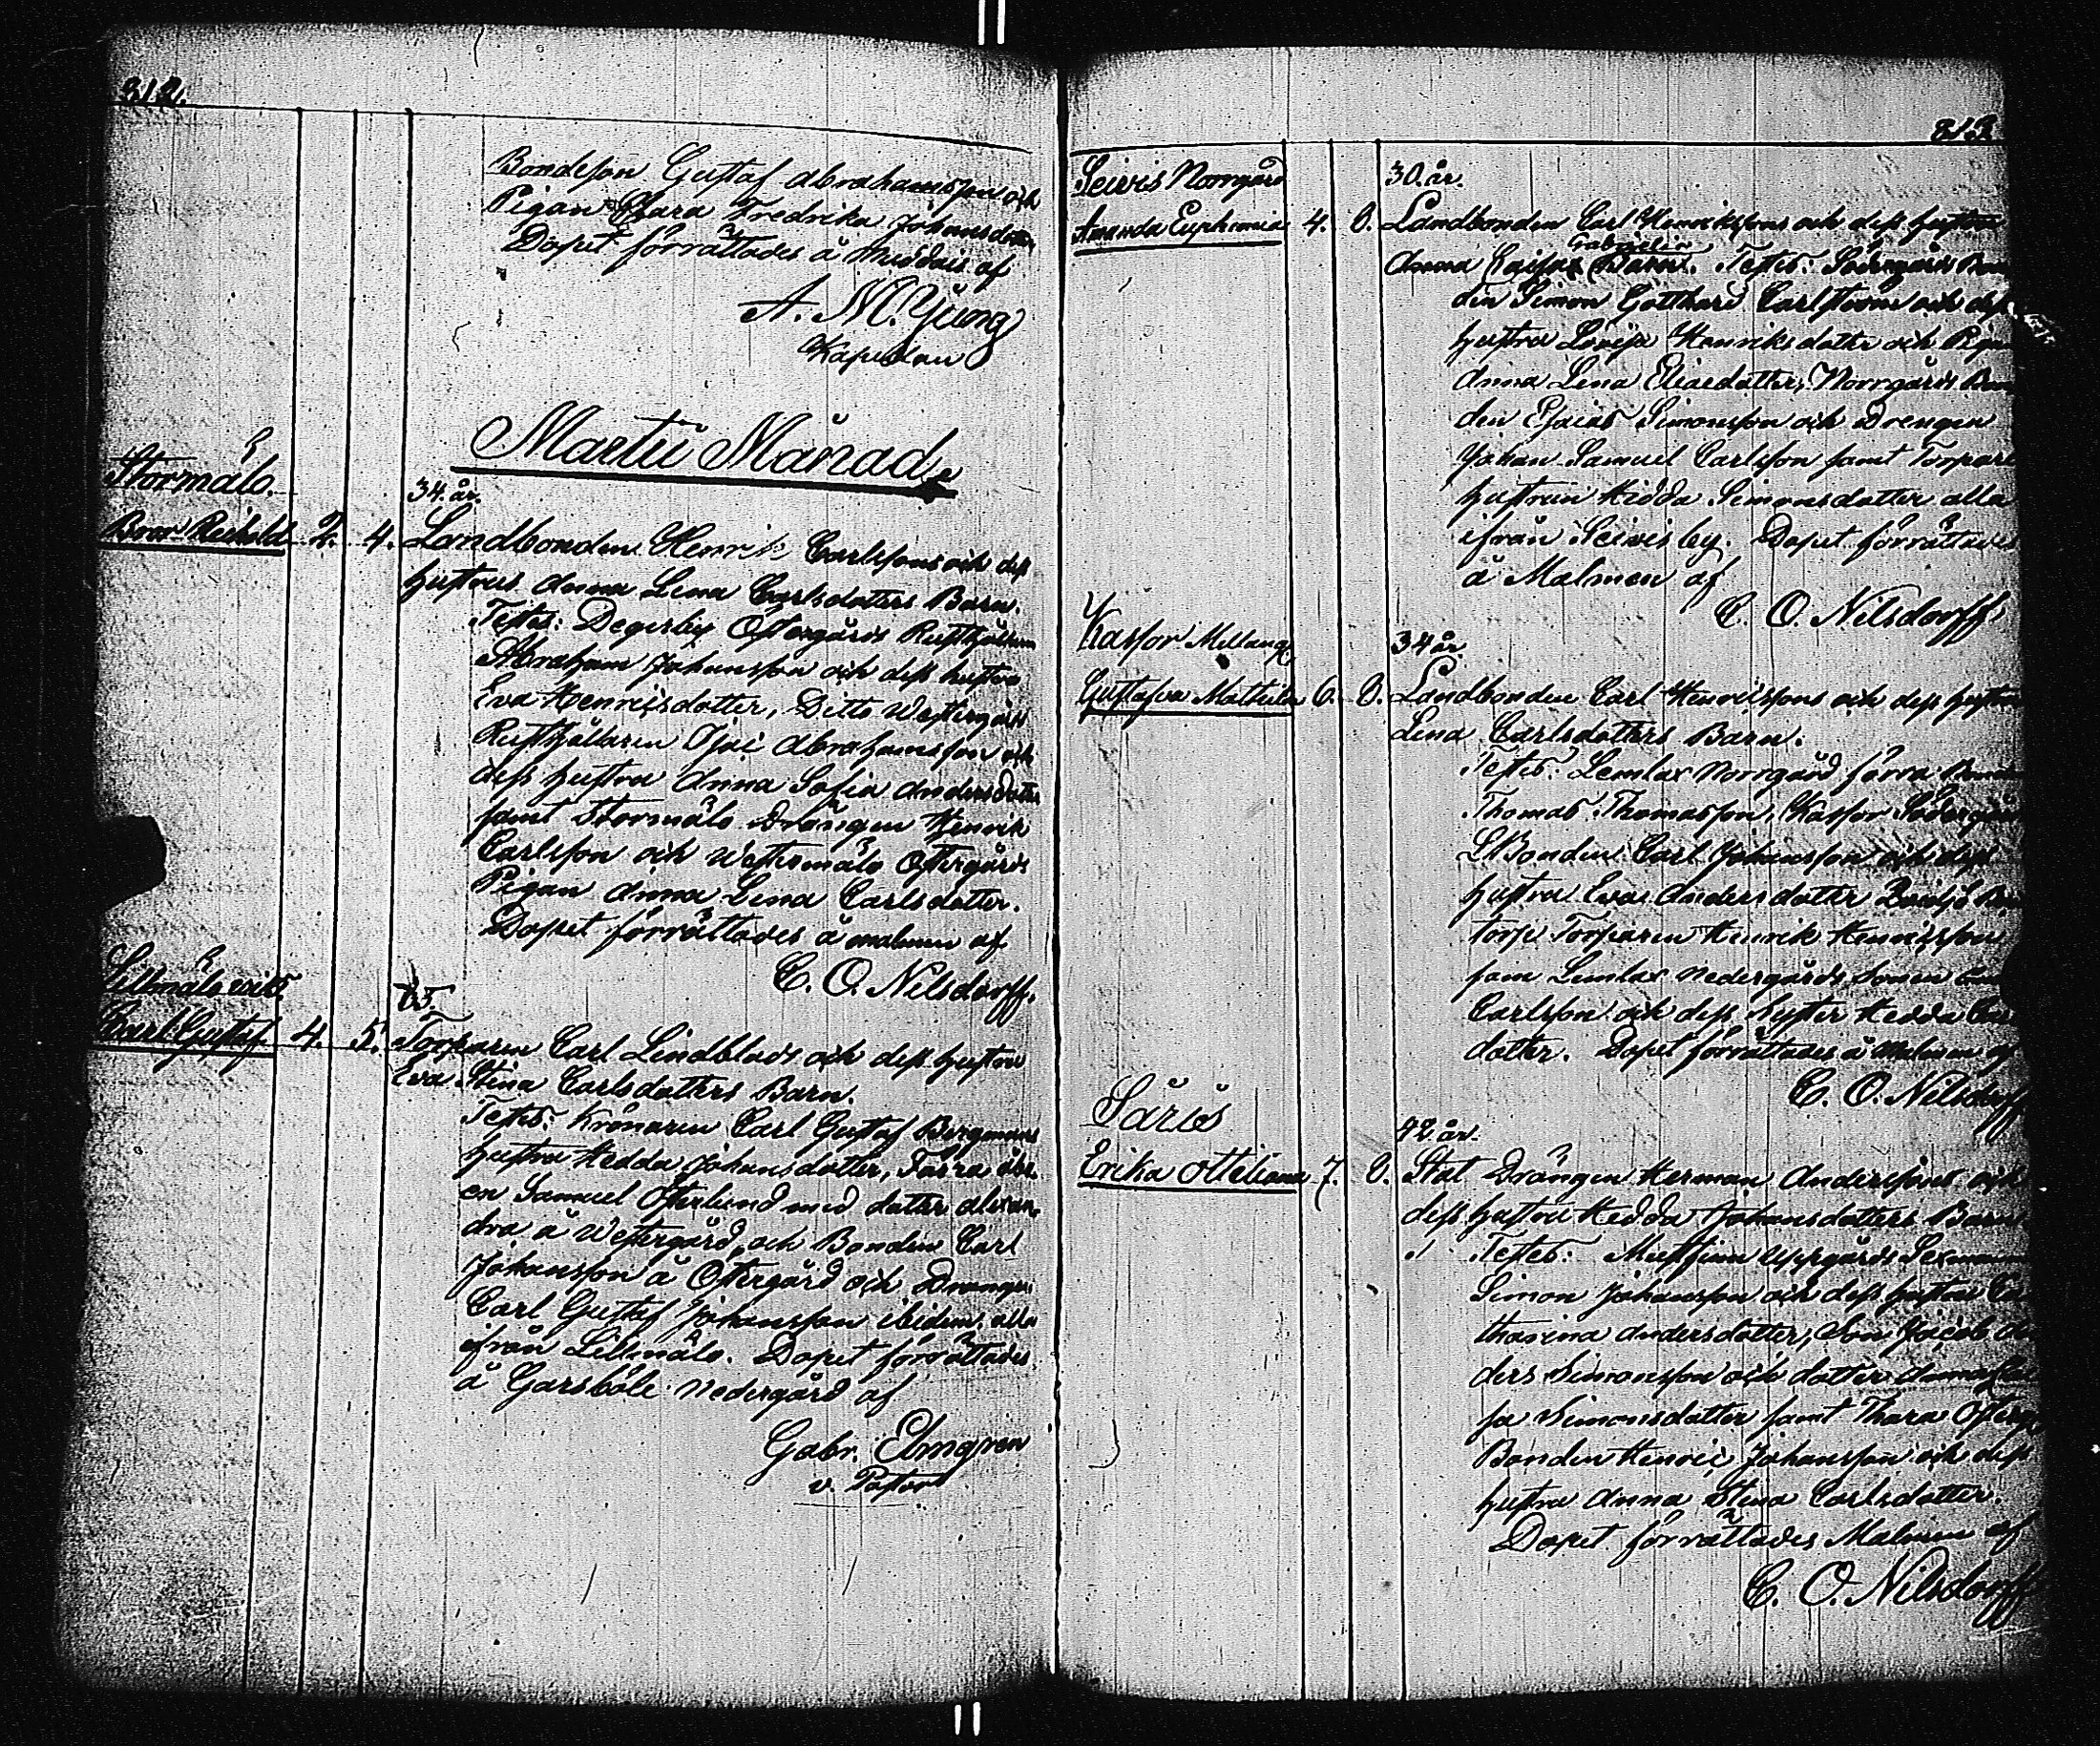 312.
Bondeson Gustaf Abrahamsson och
Pigan Clara Fredrika Johansdotter
Dopet förrättades å Middais af
A. M. Ljung
Kapellan
Martii Månad
Stormålo.
34. år.
Bror Reihold 2. 4. Landbonden Henrik Carlssons och dess
hustrus Anna Lena Carlsdotters Barn.
Testes: Degerby Östergårds Rusthållaren
Abraham Johansson och dess hustru
Eva Henricsdotter, Ditto Westergårds
Rusthållaren Isac Abrahamsson och
dess hustru Anna Sofia Andersdotter
samt Stormålo Drängen Henrik
Carlsson och Westermålo Östergårds
Pigan Anna Lena Carlsdotter.
Dopet förrättades å Malmen af
C. O. Nilsdorff.
Lillmålo
Carl Gustaf. 4. 5. Torparen Carl Lindblads och dess hustru
Eva Stina Carlsdotters Barn.
Testes: Carl Gustaf Bergmans
hustru Hedda Johansdotter, Förra
en Samuel Österlund med dotter Alexan-
dra å Westergård och Bonden Carl
Johansson å Östergård och Drängen
Carl Gustaf Johansson ibidem, alla
ifrån Lillmålo. Dopet förrättades
å Garsböle Nedergård af
Gabr. Elmgren
v. Pastor
313
Seivis Norrgård
30. år.
Amanda Euphemia 4. 8. Landbonden Carl Henrikssons och dess hustru
Gabriels
Anna Caisas Barn. Testes: Södergårds Bon
den Simon Gotthard Carlstroms och dess
hustru Lovisa Henriksdotter och Pigan
Anna Lena Eliaedotter, Norrgårds Bon
den Esaias Simonsson och Drengen
Johan Samuel Carlsson samt Torpare
hustrun Hedda Simonsdotter alla
ifrån Seivis by. Dopet förrättades
å Malmen af
C. O. Nilsdorff
Kassor Mellang.
34 år.
Gustafva Mathilda 6. 8. Landbonden Carl Henrikssons och dess hustru
Lena Carlsdotters Barn.
Testes: Lemlax Norrgård förra
Thomas Thomasson, Kassor Södergård
LBonden Carl Johansson och dess
hustru Eva Andersdotter
torp Torparen Henrik Henricsson
som Lemlax Nedergårds Sonen
Carlsson och dess syster Hedda
dotter. Dopet förrättades å Malmen af
C. O. Nilsdorff
Särcs
42 år.
Erika Otteliana 7. 8. Stat Drängen Herman Anderssons och
dess hustru Hedda Johansdotters Barn
Testes: Uppgårds Sexman
Simon Johansson och dess hustru Ca
tharina Andersdotter, Son Jacob An
ders Simonsson och dotter Anna
sa Simonsdotter samt Tharas Österg.
Bonden Henric Johansson och dess
hustru Anna Stina Carlsdotter.
Dopet förrättades Malmen af
C. O. Nilsdorff